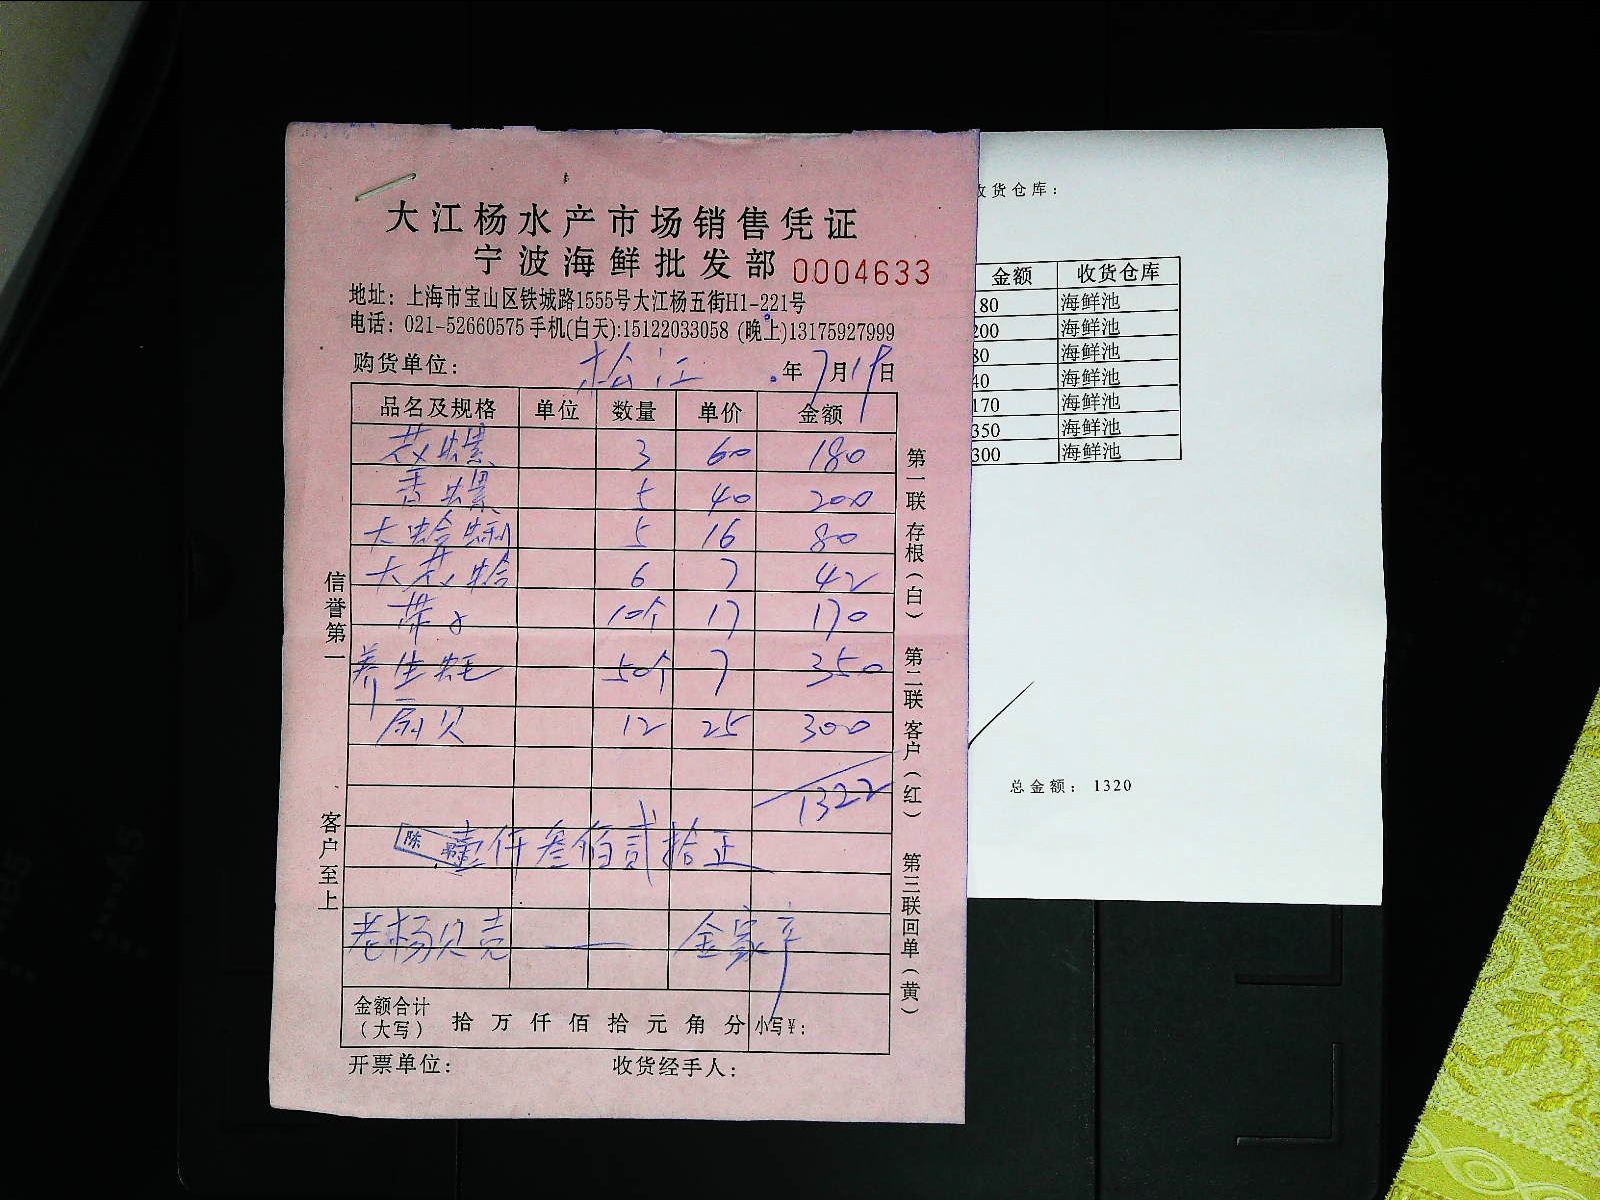 大江杨水产市场销售凭证
宁波海鲜批发部 0004633
地址：上海市宝山区铁城路1555号大江杨五街H1-221号
电话：021-52660575 手机(白天):15122033058 (晚上)13175927999
购货单位： 松江 年7月19日
品名及规格 单位 数量 单价 金额
花螺 3 60 180
香螺 5 40 200
大蛤蜊 5 16 80
大花蛤 6 7 42
带子 10个 17 170
养生蚝 50个 7 350
扇贝 12 25 300
1322
陈
壹仟叁佰贰拾正
老杨贝壳 — 金家
金额合计
（大写） 拾 万 仟 佰 拾 元 角 分 小写￥：
开票单位： 收货经手人：
信誉第一
客户至上
第一联 存根（白） 第二联 客户（红） 第三联回单（黄）
收货仓库：
金额 收货仓库
80 海鲜池
200 海鲜池
80 海鲜池
40 海鲜池
170 海鲜池
350 海鲜池
300 海鲜池
总金额： 1320